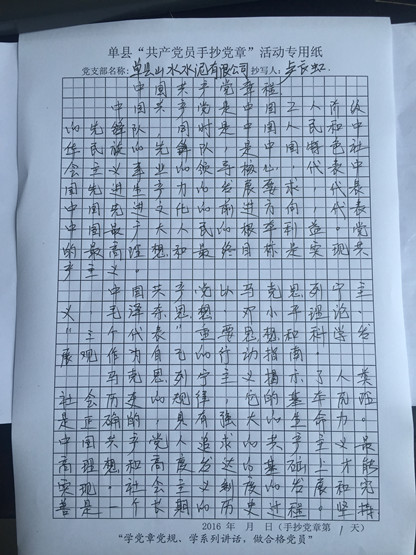 单县“共产党员手抄党章”活动专用纸
党支部名称:单县山水水泥有限公司 抄写人:
中国共产党章程
中国共产党是中国工人阶级
的先锋队,同时是中国人民和中
华民族的先锋队,是中国特色社
会主义事业的领导核心,代表中
国先进生产力的发展要求,代表
中国先进文化的前进方向,代表
中国最广大人民的根本利益。党
的最高理想和最终目标是实现共
产主义。
中国共产党以马克思列宁主
义,毛泽东思想,邓小平理论、
“三个代表”重要思想和科学发
展观作为自己的行动指南。
马克思列宁主义揭示了人类
社会历史的规律,它的基本原理
是正确的,具有强大的生命力。
中国共产党人追求的共产主义最
高理想和高度发达的基础上才能
实现。社会主义制度的发展和完
善是一个长期的历史过程。坚持
2016 年 月 日(手抄党章第 1 天)
“学党章党规、学系列讲话,做合格党员”